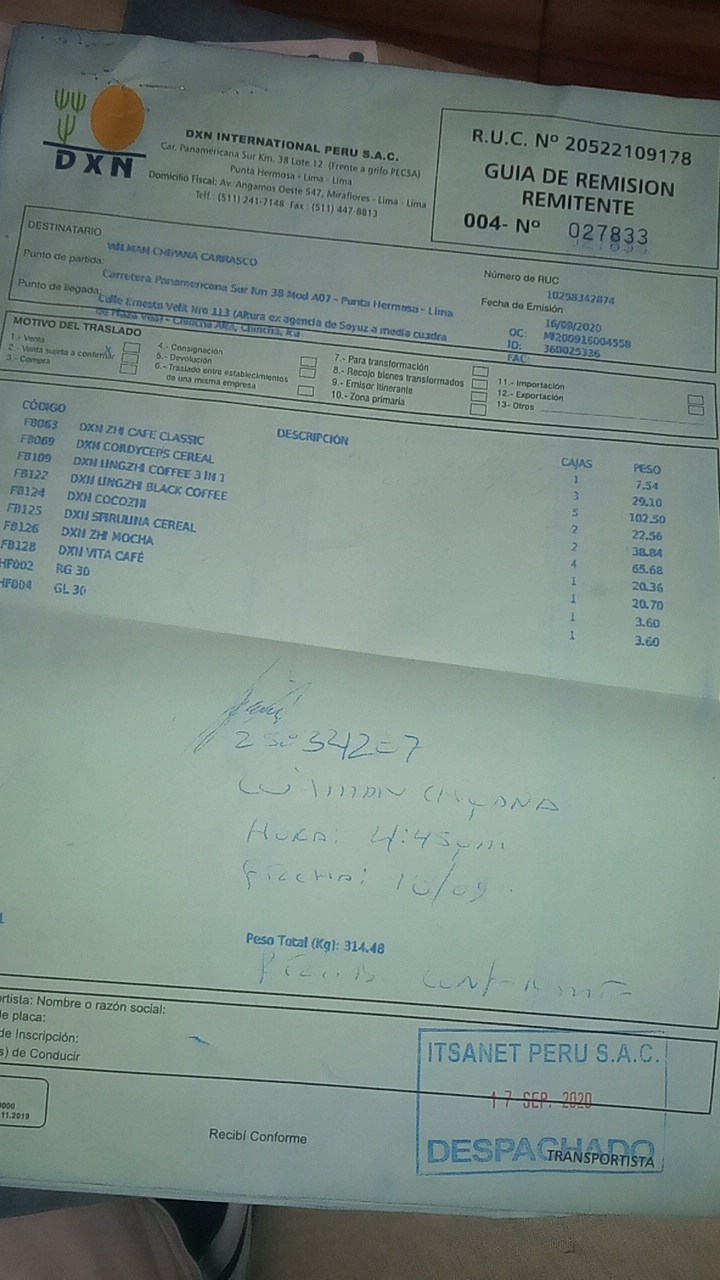 DXN
DXN INTERNATIONAL PERU S.A.C.
Car. Panamericana Sur Km. 38 Lote 12 (Frente a grifo PECSA)
Punta Hermosa - Lima - Lima
Domicilio Fiscal: Av. Angamos Oeste 547, Miraflores - Lima - Lima
Telf : (511) 241-7148 Fax : (511) 447-8813
R.U.C. Nº 20522109178
GUIA DE REMISION
REMITENTE
004- Nº 027833
DESTINATARIO
WILMAN CHIPANA CARRASCO
Punto de partida:
Carretera Panamericana Sur Km 38 Mod A07 - Punta Hermosa - Lima
Punto de llegada:
Calle Ernesto Velit Nro 113 (Altura ex agencia de Soyuz a media cuadra
de Plaza Vea) - Chincha Alta, Chincha, Ica
Número de RUC
10258342874
Fecha de Emisión
16/09/2020
OC: MI200916004558
ID: 360025336
FAC:
MOTIVO DEL TRASLADO
1.- Venta
2.- Venta sujeta a confirmar X
3.- Compra
4.- Consignación
5.- Devolución
6.- Traslado entre establecimientos
de una misma empresa
7.- Para transformación
8.- Recojo bienes transformados
9.- Emisor Itinerante
10.- Zona primaria
11.- Importación
12.- Exportación
13- Otros
CÓDIGO DESCRIPCIÓN CAJAS PESO
FB063 DXN ZHI CAFE CLASSIC 1 7.54
FB069 DXN CORDYCEPS CEREAL 3 29.10
FB109 DXN LINGZHI COFFEE 3 IN 1 5 102.50
FB122 DXN LINGZHI BLACK COFFEE 2 22.56
FB124 DXN COCOZHI 2 38.84
FB125 DXN SPIRULINA CEREAL 4 65.68
FB126 DXN ZHI MOCHA 1 20.36
FB128 DXN VITA CAFÉ 1 20.70
HF002 RG 30 1 3.60
HF004 GL 30 1 3.60
WILMAN CHIPANA
HORA: 4:45pm
FECHA:
Peso Total (Kg): 314.48
RECIBI CONFORME
ortista: Nombre o razón social:
de placa:
de Inscripción:
s) de Conducir
0000
11.2019
Recibí Conforme
ITSANET PERU S.A.C.
17 SEP. 2020
DESPACHADO
TRANSPORTISTA